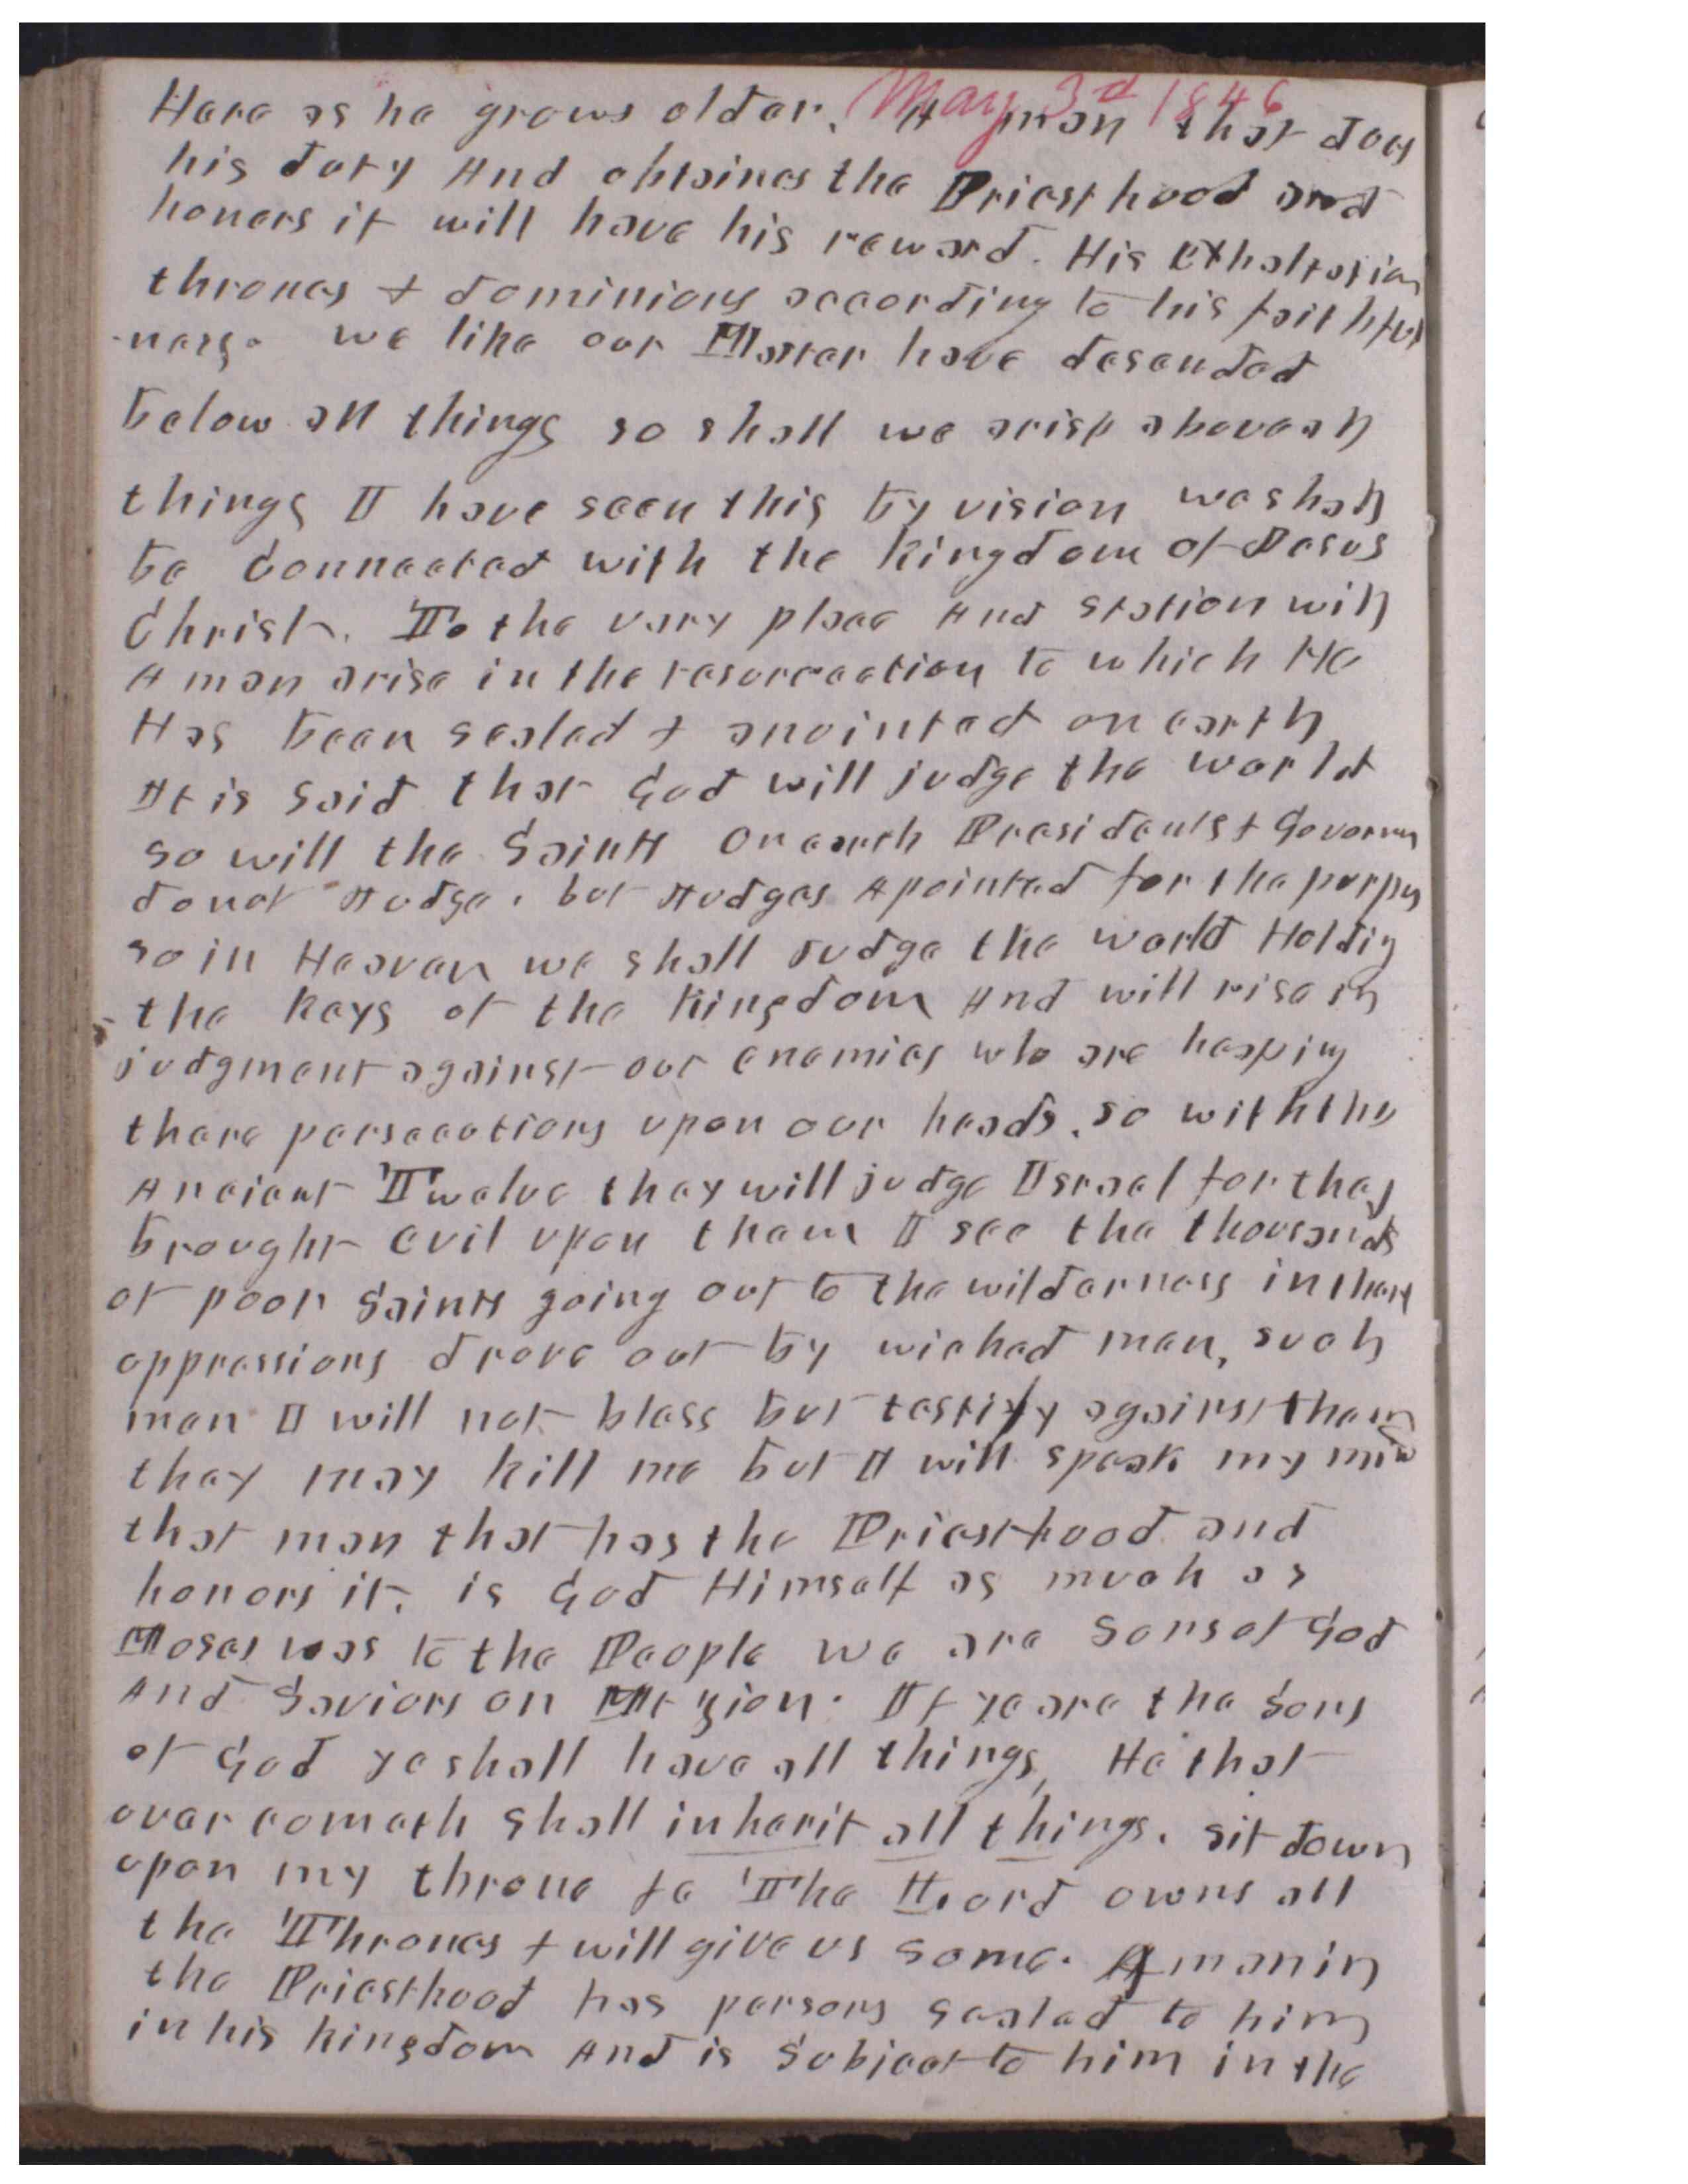 May 3d 1846
Here as he grows older. A man that does
his duty And obtaines the Priesthood and
honers it will have his reward. His Exhaltation
thrones + dominions according to his faithful
-ness. we like our Master have desended
below all things so shall we arise above all
things I have seen this by vision we shall
be Connected with the Kingdom of Jesus
Christ. To the very place And station will
A man arise in the resurrection to which He
Has been sealed + anointed on earth
It is said that God will judge the world
so will the Saints On earth Presidents + Governers
donot Judge. but Judges Apointed for the purpus
so in Heaven we shall Judge the world Holding
the Keys of the Kingdom And will rise in
judgment against our enemies who are heaping
there persecutions upon our heads. so with the
Ancient Twelve they will judge Israel for they
brought evil upon them I see the thousands
of poor Saints going out to the wilderness in there
oppressions drove out by wicked men, such
men I will not bless but testify against them
they may kill me but I will speak my mind
that man that has the Priesthood and
honors it. is God Himself as much as
Moses was to the People we are Sons of God
And Saviors on Mt Zion. If ye are the Sons
of God ye shall have all things, He that
over cometh shall inherit all things. sit down
upon my throne fe The Lord owns all
the Thrones + will give us some. A man in
the Priesthood has persons sealed to him
in his kingdom And is Subject to him in the